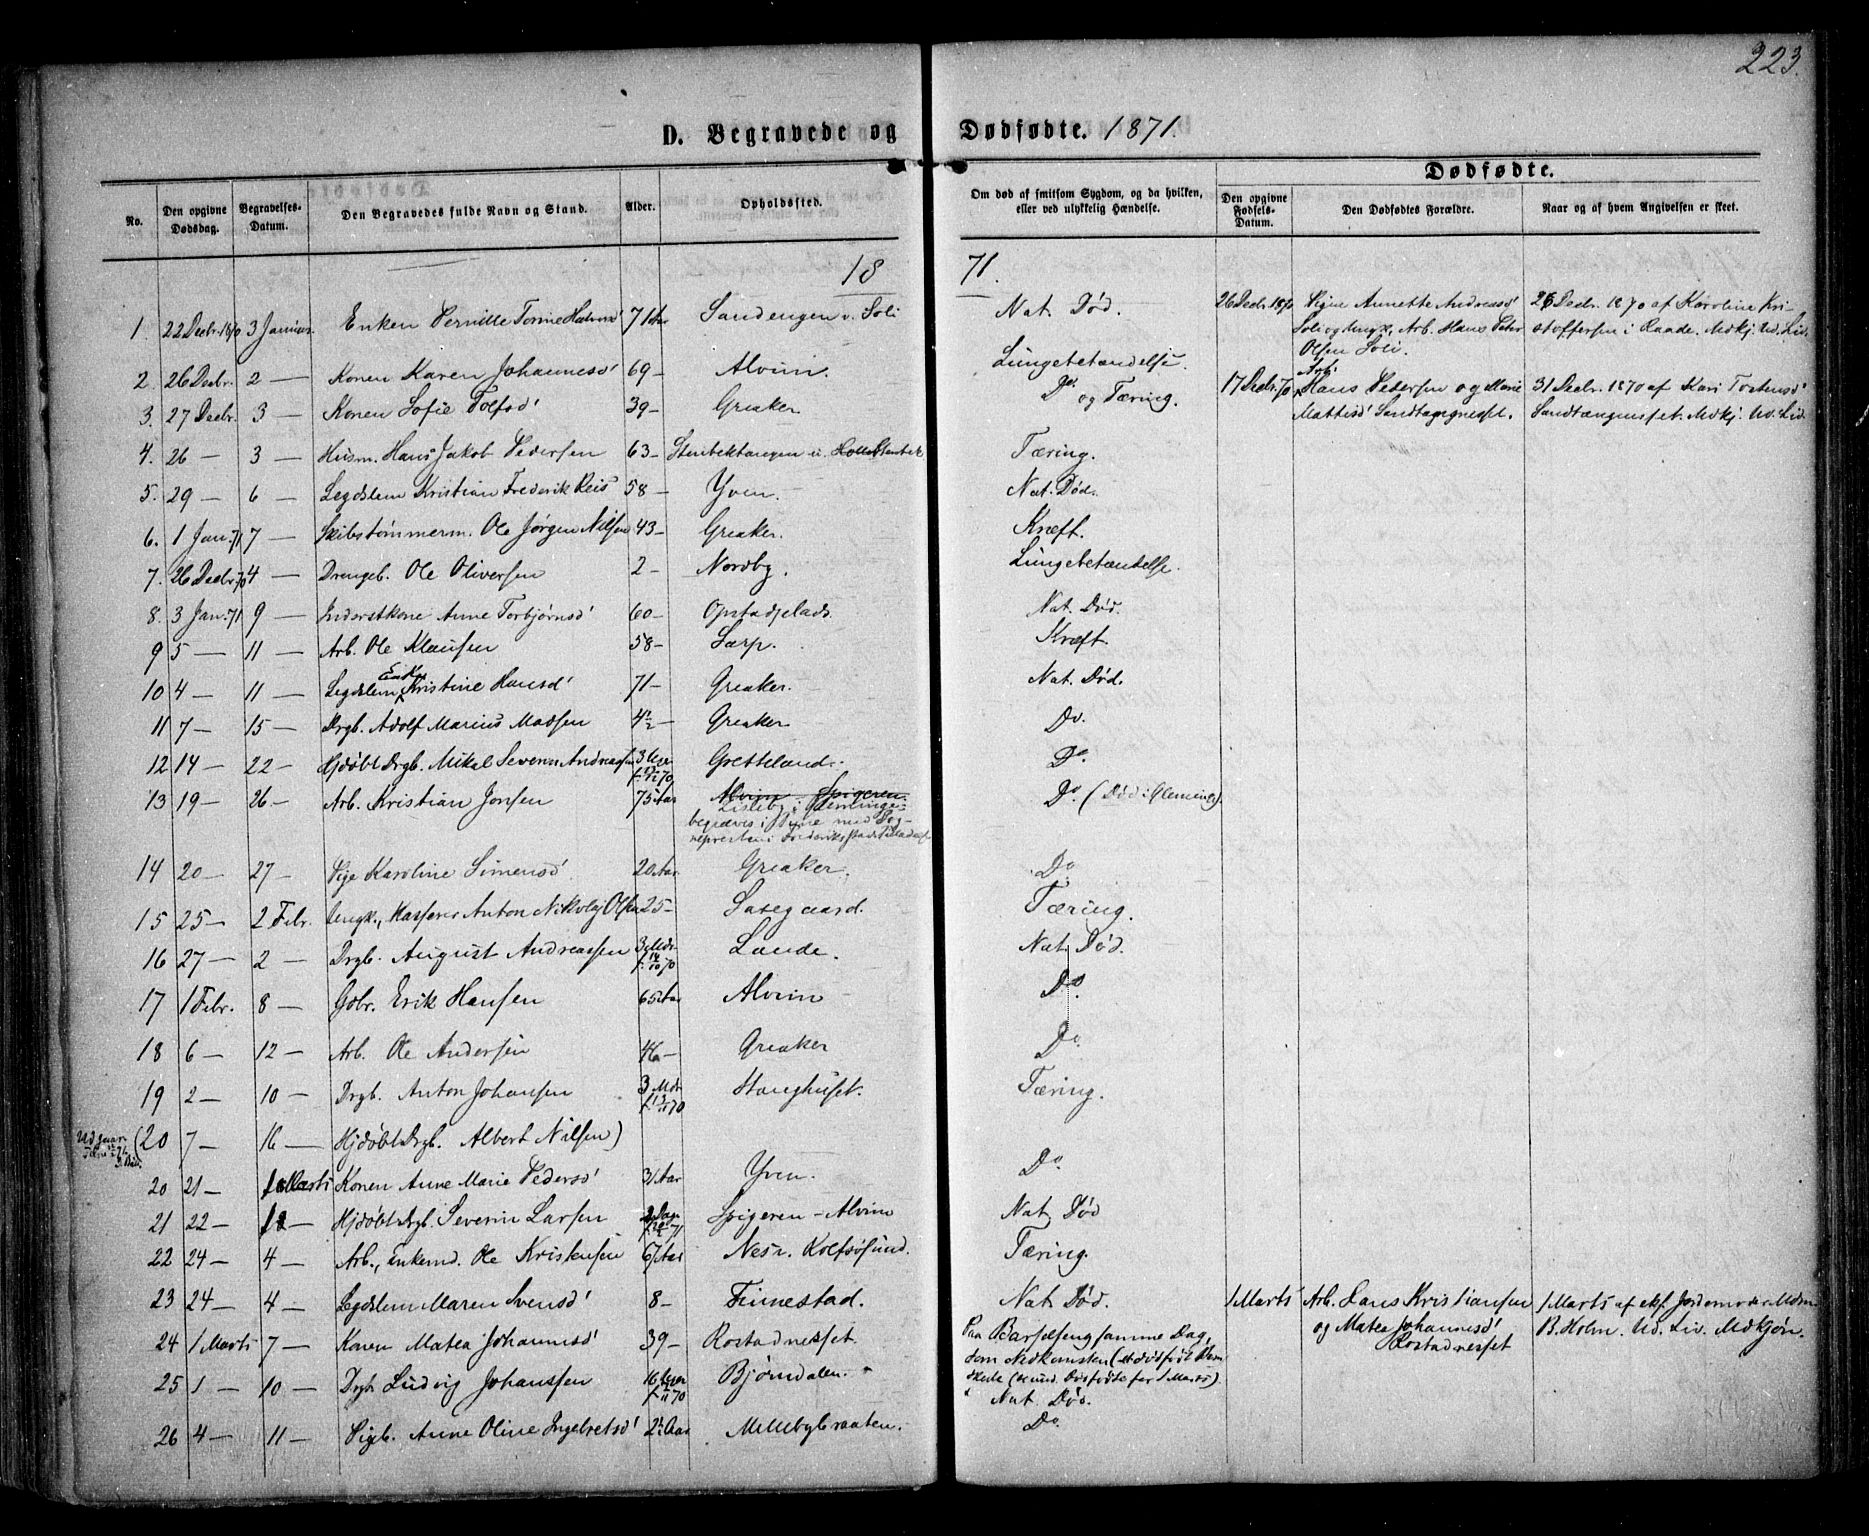 223.
D. Begravede og Dødfødte. 1871.
Dødfødte.
No. Den opgivne Dødsdag. Begravelses-Datum. Den Begravedes fulde Navn og Stand. Alder. Opholdssted. Om død af smitsom Sygdom, og da hvilken, eller ved ulykkelig Hændelse. Den opgivne Fødsels-Datum. Den Dødfødtes Forældre. Naar og af hvem Angivelsen er skeet.
18 71.
1. 22 Decbr. 1870 3 Januar Enken Pernille Torine 71 Aar Sandengen v. Soli Nat. Død. 26 Decbr. 1870 Pigen Annette Andreasd' 26 Decbr. 1870 af Karoline Kri-
Soli og Ungk. Arb. Hans Peter stoffersen i Raade. Mdkj. Ud. Liv.
Olsen Soli.
2. 26 Decbr. 2 — Konen Karen Johannesd' 69 — Alvim. Lungebetændelse.
3. 27 Decbr. 3 — Konen Sofie Tolfsd' 39 — Greaker Do og Tæring. 17 Decbr. 70 Arb. Hans Pedersen og Marie 31 Decbr. 1870 af Kari
Mattisd' Mdkj. Ud. Liv
4. 26 — 3 — Husm. Hans Jakob Pedersen 63 — Stenbektangen u. Tæring.
5. 29 — 6 — Legdslem Kristian Frederik Reis 58 — Yven. Nat. Død.
6. 1 Jan. 71 7 — Skibstømmerm. Ole Jørgen Nilsen 43 — Greaker. Kræft.
7. 26 Decbr. 70 4 — Drengeb. Ole Oliversen 2 — Nordby. Lungebetændelse.
8. 3 Jan. 71 9 — Inderstkone Anne Torbjørnsd' 60 — Opstadplads. Nat. Død.
9 5 — 11 — Arb. Ole Klausen 58 — Sarp. Kræft.
10 4 — 11 — Legdslem Enke Kristine Hansd' 71 — Greaker. Nat. Død.
11 7 — 15 — Drgb. Adolf Marius Madsen 4½ — Greaker Do.
12 14 — 22 — Hjdøbt Drgb. Mikal Severin Andreassen 3 Uger Gretteland. Do.
13 19 — 26 — Arb. Kristian Jonsen 75 Aar Alvim Spigeren Do. (Død i Glemminge).
Lisleby i Glemminge
begraves i Tune med Sog-
nepræsten i Frederiksstads
14 20 — 27 — Pige Karoline Simensd' 20 Aar Greaker. Do
15 25 — 2 Febr. Ungk., Anton Nikolaj Olsen 25 — Tæring.
16 27 — 2 — Drgb. August Andreassen 3 Mdr. f. 14/10 70 Lande. Nat. Død.
17 1 Febr. 8 — Gbr. Erik Hansen 65 Aar Alvim Do.
18 6 — 12 — Arb. Ole Andersen 46 — Greaker Do
19 2 — 10 — Drgb. Anton Johansen 3 Mdr Stanghuset. Tæring.
Udgaar (20 7 — 16 — Hjdøbt Drgb. Albert Nilsen)
20 21 — 1 Marts Konen Anne Marie Pedersd' 31 Aar Yven. Do.
21 22 — Hjdøbt Drgb. Severin Larsen 2 Dage Spigeren - Alvim Nat. Død
22 24 — 4 — Arb., Enkemd. Ole Kristensen 67 Aar Nes v. Kolfsøsund. Tæring.
23 24 — 4 — Legdslem Maren Svensd' 8 — Finnestad. Nat. Død. 1 Marts Arb. Lars Kristiansen 1 Marts af ex. Jordemoder Mdm
24 1 Marts 7 — Konen Matea Johannesd' 39 — Rostadnesset. Paa Barselseng samme Dag, og Matea Johannesd' B. Holm. Ud. Liv. Mdkjøn.
Rostadnesset
som Nedkomsten (et dødfødt Barn
25 1 — 10 — Drgb Ludvig Johanssen 16 Uger Bjørndalen. skede (se und. Dødfødte for 1 Marts).
Nat. Død.
26 4 — 11 — Pigeb. Anne Oline Ingebretsd' 2½ Aar Millebybraaten. Do.